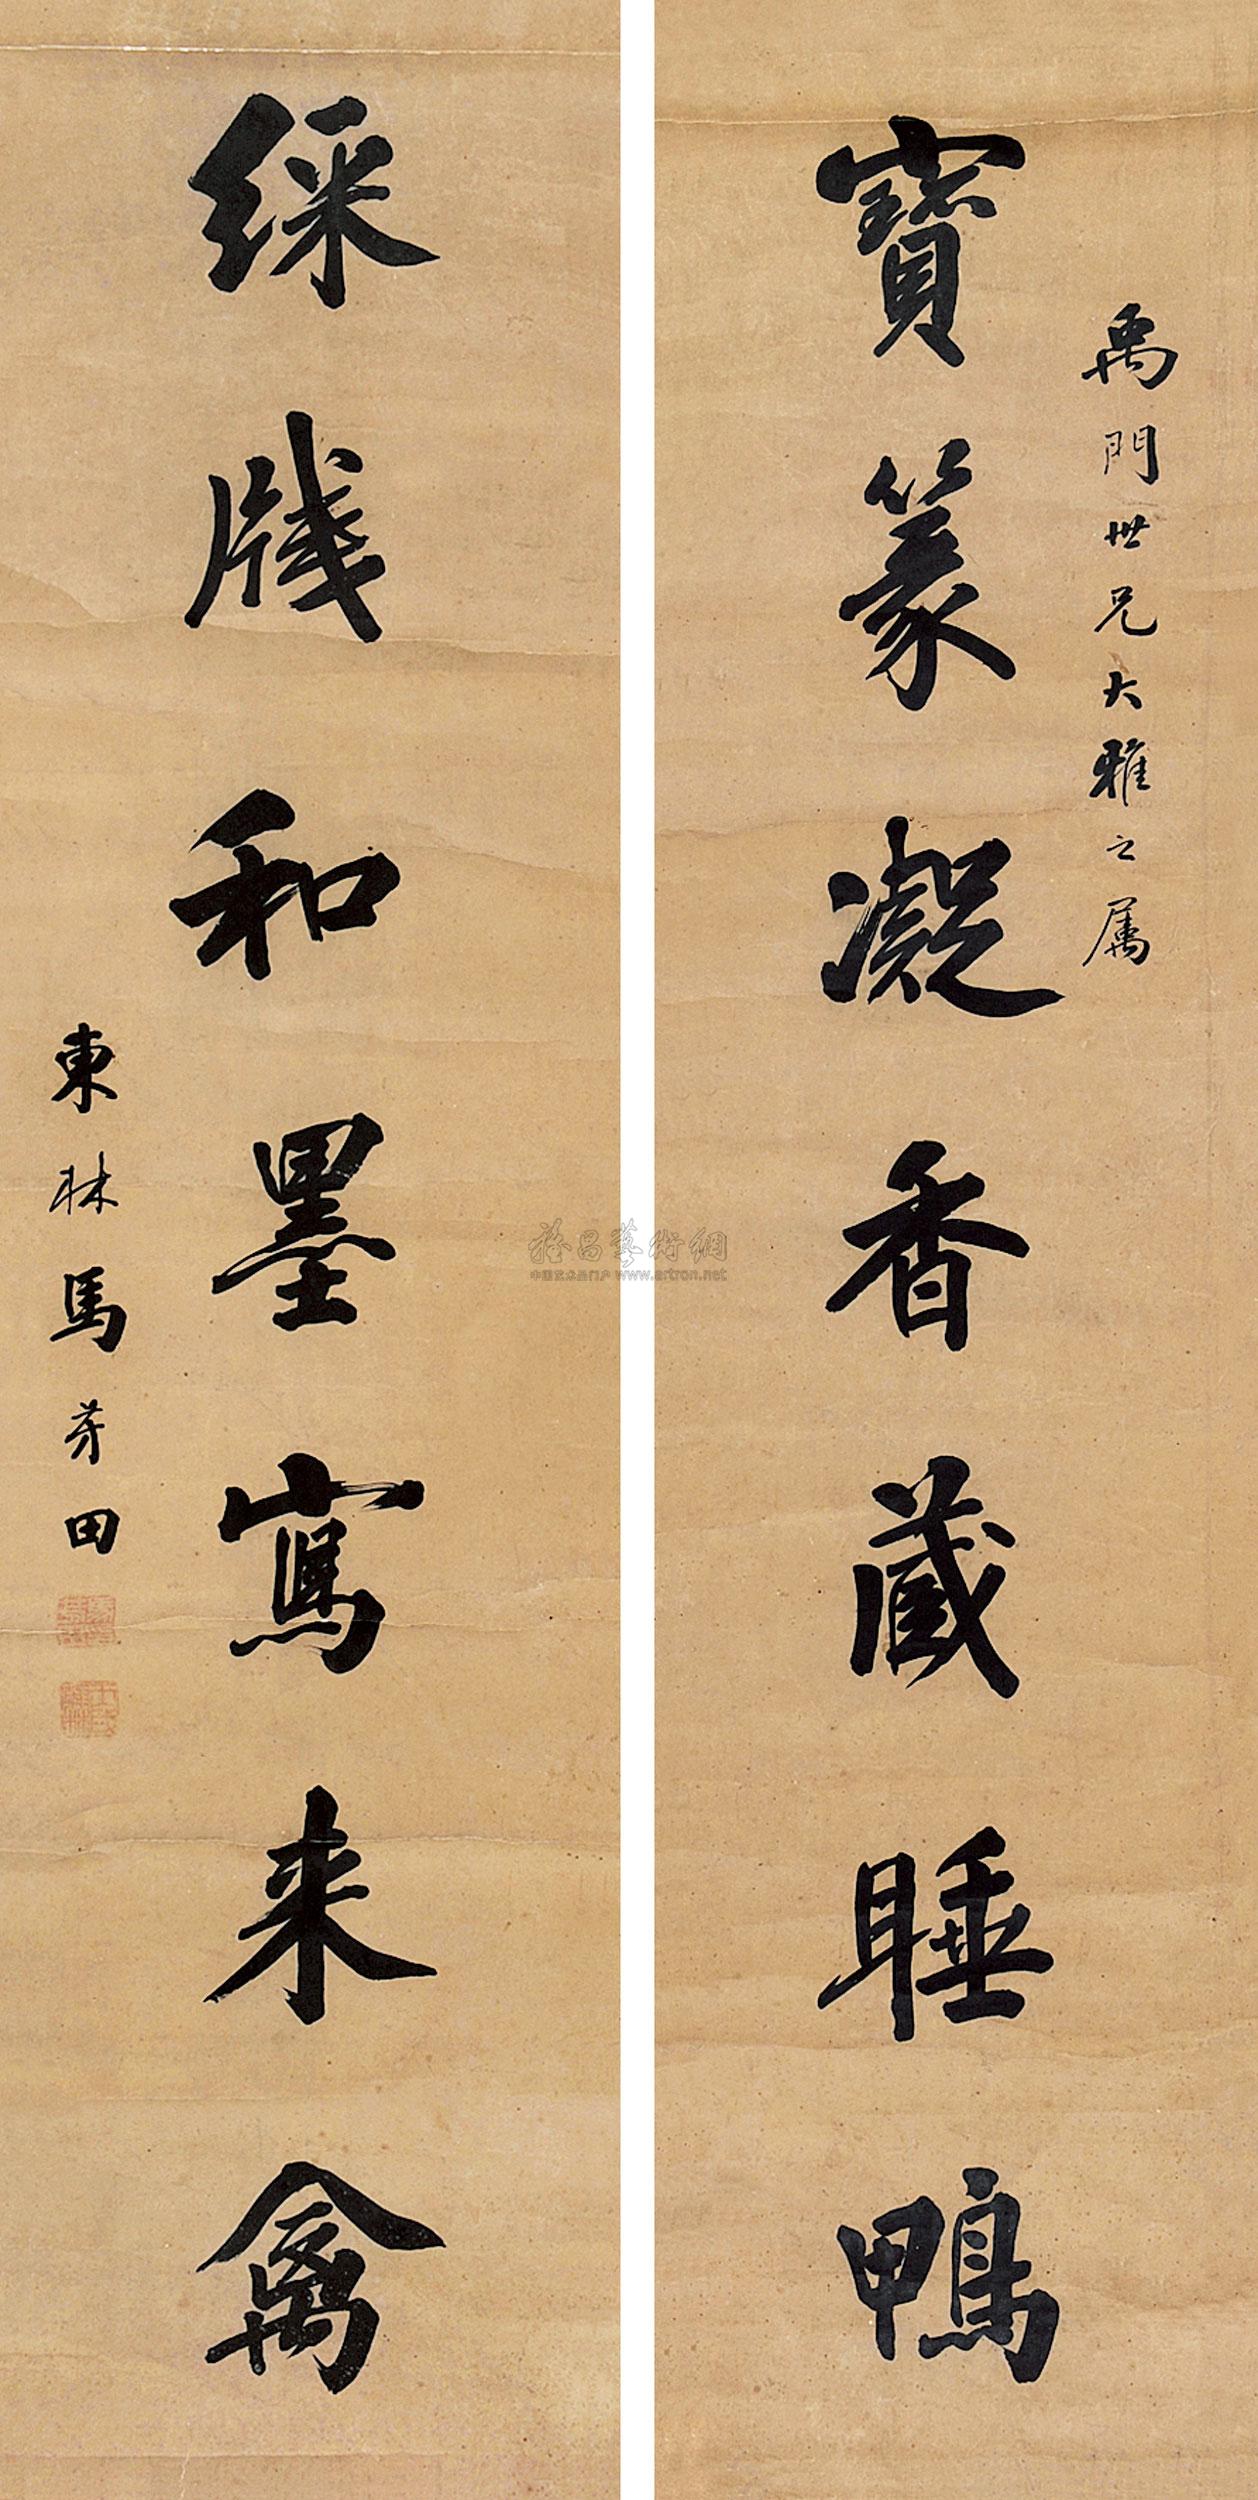 禹門世兄大雅之屬
寶篆凝香藏睡鴨
綵牋和墨寫來禽
東林馬芳田
雅昌藝術網
中国艺术品门户 www.artron.net